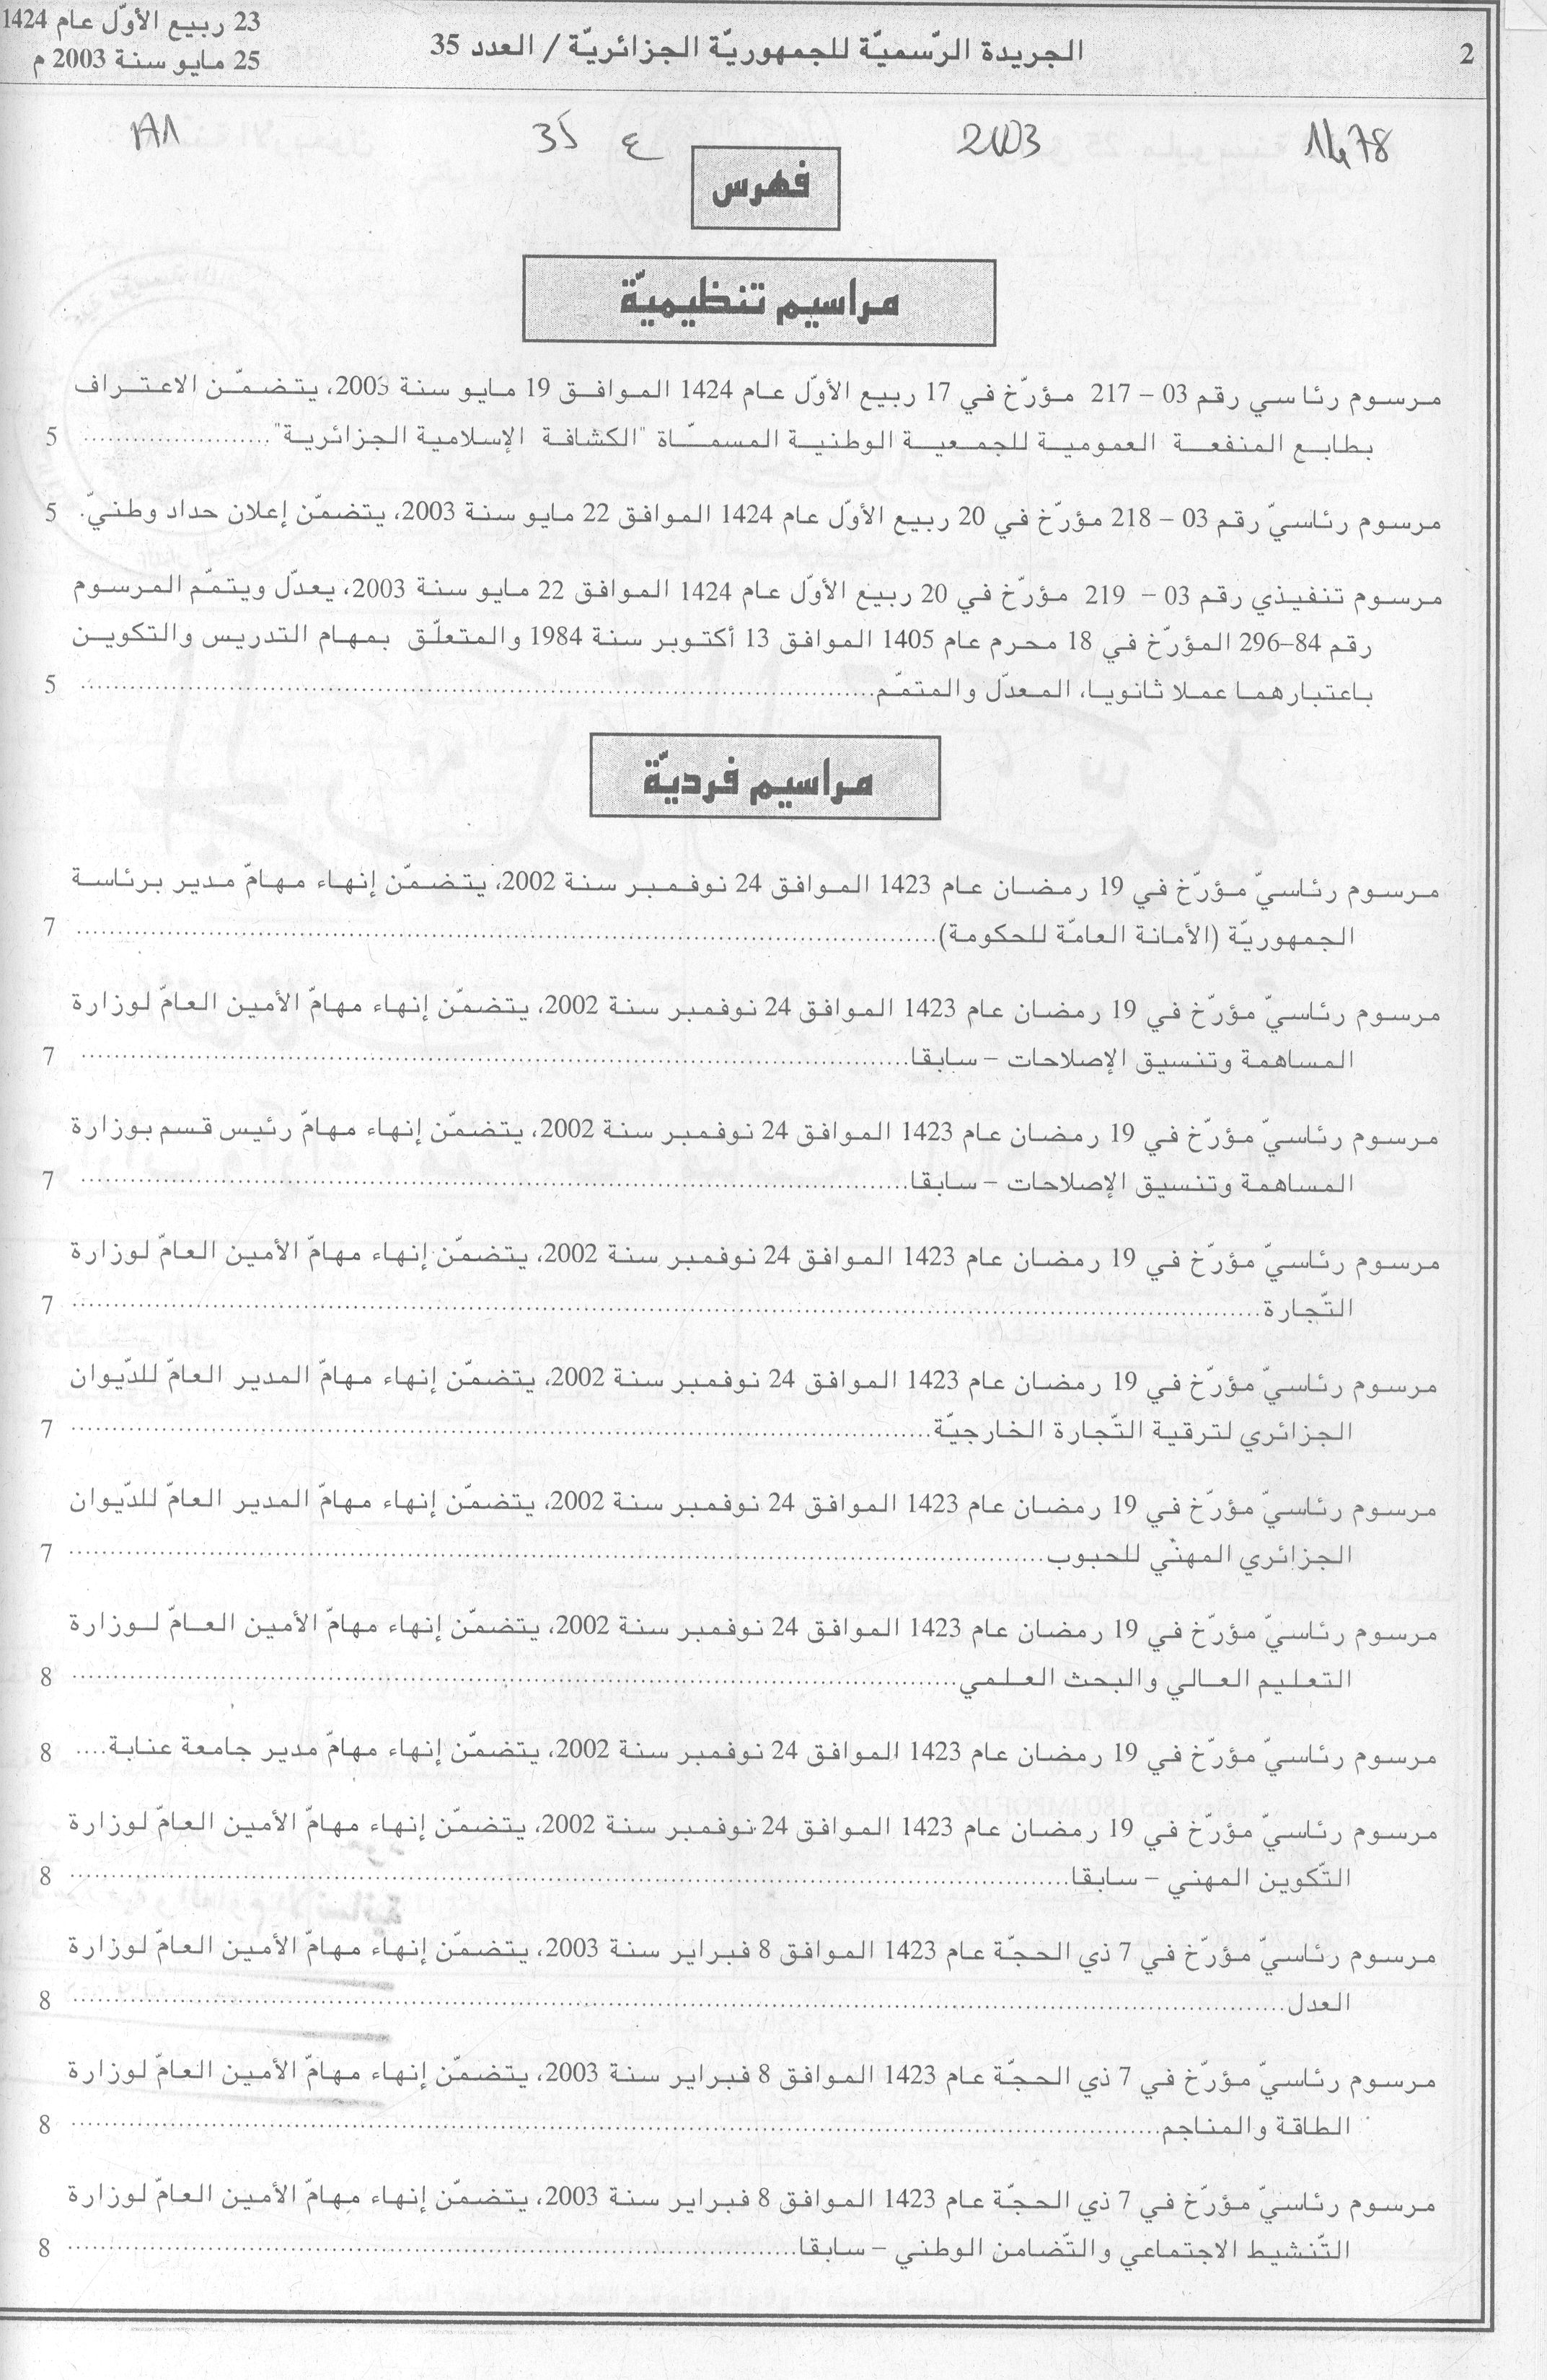 2
الجريدة الرّسميّة للجمهوريّة الجزائريّة / العدد 35
23 ربيع الأوّل عام 1424
25 مايو سنة 2003 م
1478 2003 ع 35
فهرس
مراسيم تنظيميّة
مرسوم رئاسي رقم 03 – 217 مؤرّخ في 17 ربيع الأوّل عام 1424 الموافق 19 مايو سنة 2003، يتضمّن الاعتراف
بطابع المنفعة العمومية للجمعية الوطنية المسمّاة "الكشافة الإسلامية الجزائرية".......................... 5
مرسوم رئاسيّ رقم 03 – 218 مؤرّخ في 20 ربيع الأوّل عام 1424 الموافق 22 مايو سنة 2003، يتضمّن إعلان حداد وطنيّ. 5
مرسوم تنفيذي رقم 03 – 219 مؤرّخ في 20 ربيع الأوّل عام 1424 الموافق 22 مايو سنة 2003، يعدّل ويتمّم المرسوم
رقم 84–296 المؤرّخ في 18 محرم عام 1405 الموافق 13 أكتوبر سنة 1984 والمتعلّق بمهام التدريس والتكوين
باعتبارهما عملا ثانويا، المعدّل والمتمّم.......................... 5
مراسيم فرديّة
مرسوم رئاسيّ مؤرّخ في 19 رمضان عام 1423 الموافق 24 نوفمبر سنة 2002، يتضمّن إنهاء مهامّ مدير برئاسة
الجمهوريّة (الأمانة العامّة للحكومة).......................... 7
مرسوم رئاسيّ مؤرّخ في 19 رمضان عام 1423 الموافق 24 نوفمبر سنة 2002، يتضمّن إنهاء مهامّ الأمين العامّ لوزارة
المساهمة وتنسيق الإصلاحات – سابقا.......................... 7
مرسوم رئاسيّ مؤرّخ في 19 رمضان عام 1423 الموافق 24 نوفمبر سنة 2002، يتضمّن إنهاء مهامّ رئيس قسم بوزارة
المساهمة وتنسيق الإصلاحات – سابقا.......................... 7
مرسوم رئاسيّ مؤرّخ في 19 رمضان عام 1423 الموافق 24 نوفمبر سنة 2002، يتضمّن إنهاء مهامّ الأمين العامّ لوزارة
التّجارة.......................... 7
مرسوم رئاسيّ مؤرّخ في 19 رمضان عام 1423 الموافق 24 نوفمبر سنة 2002، يتضمّن إنهاء مهامّ المدير العامّ للدّيوان
الجزائري لترقية التّجارة الخارجيّة.......................... 7
مرسوم رئاسيّ مؤرّخ في 19 رمضان عام 1423 الموافق 24 نوفمبر سنة 2002، يتضمّن إنهاء مهامّ المدير العامّ للدّيوان
الجزائري المهنّي للحبوب.......................... 7
مرسوم رئاسيّ مؤرّخ في 19 رمضان عام 1423 الموافق 24 نوفمبر سنة 2002، يتضمّن إنهاء مهامّ الأمين العامّ لوزارة
التعليم العالي والبحث العلمي.......................... 8
مرسوم رئاسيّ مؤرّخ في 19 رمضان عام 1423 الموافق 24 نوفمبر سنة 2002، يتضمّن إنهاء مهامّ مدير جامعة عنابة.... 8
مرسوم رئاسيّ مؤرّخ في 19 رمضان عام 1423 الموافق 24 نوفمبر سنة 2002، يتضمّن إنهاء مهامّ الأمين العامّ لوزارة
التّكوين المهني – سابقا.......................... 8
مرسوم رئاسيّ مؤرّخ في 7 ذي الحجّة عام 1423 الموافق 8 فبراير سنة 2003، يتضمّن إنهاء مهامّ الأمين العامّ لوزارة
العدل.......................... 8
مرسوم رئاسيّ مؤرّخ في 7 ذي الحجّة عام 1423 الموافق 8 فبراير سنة 2003، يتضمّن إنهاء مهامّ الأمين العامّ لوزارة
الطاقة والمناجم.......................... 8
مرسوم رئاسيّ مؤرّخ في 7 ذي الحجّة عام 1423 الموافق 8 فبراير سنة 2003، يتضمّن إنهاء مهامّ الأمين العامّ لوزارة
التّنشيط الاجتماعي والتّضامن الوطني – سابقا.......................... 8